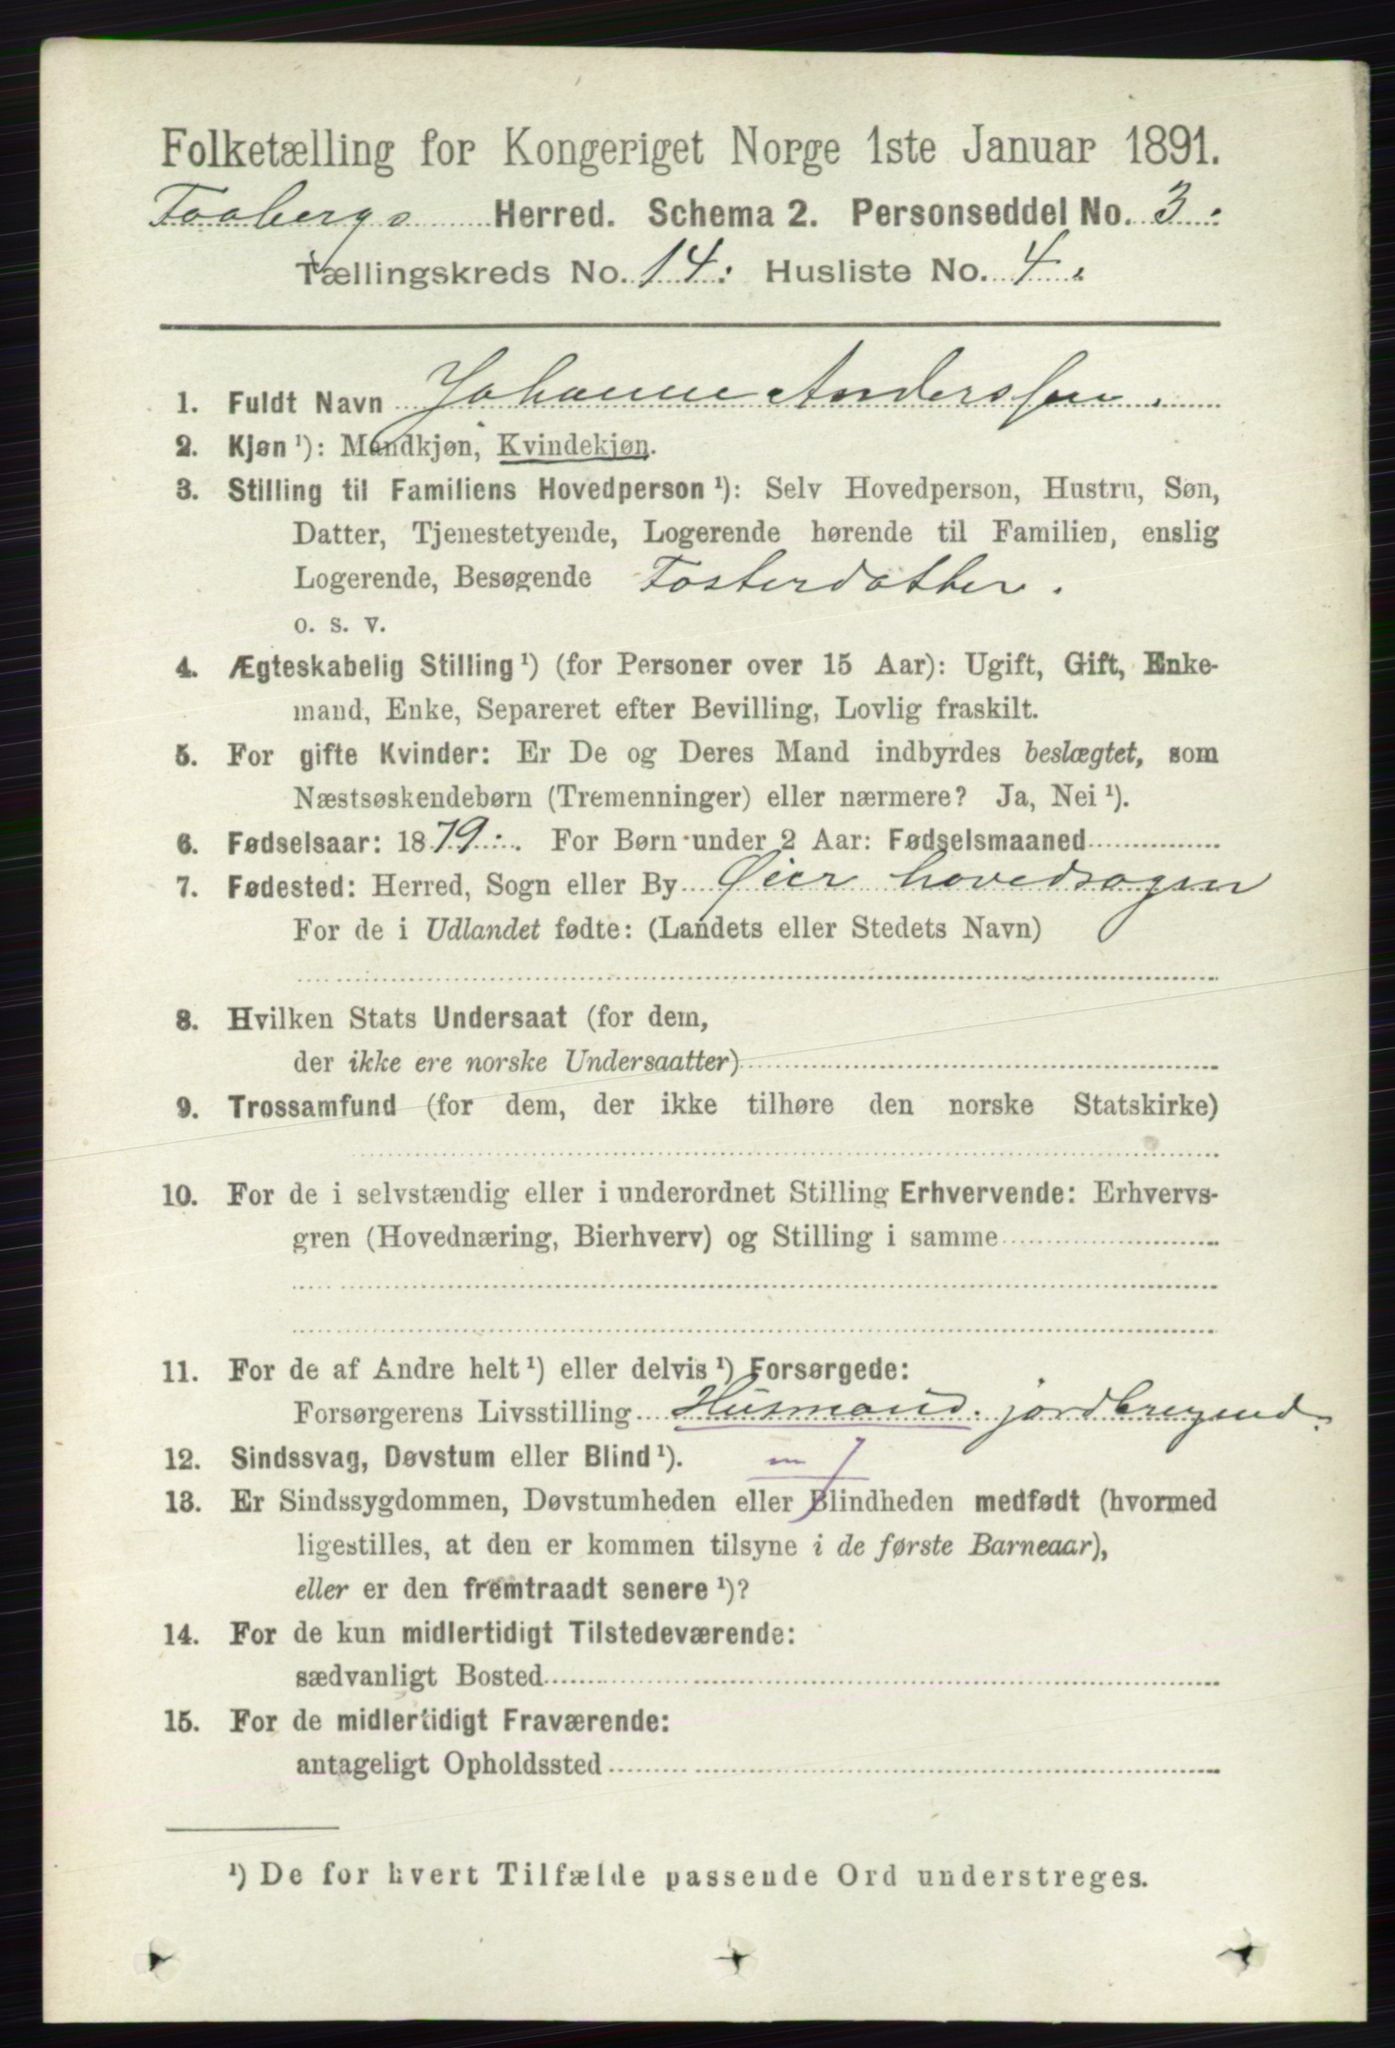 Folketælling for Kongeriget Norge 1ste Januar 1891.
Faabergs Herred. Schema 2. Personseddel No. 3.
Tællingskreds No. 14. Husliste No. 4.
1. Fuldt Navn Johanne Anderssen.
2. Kjøn ¹): Mandkjøn, Kvindekjøn.
3. Stilling til Familiens Hovedperson ¹): Selv Hovedperson, Hustru, Søn,
Datter, Tjenestetyende, Logerende hørende til Familien, enslig
Logerende, Besøgende Fosterdatter.
o. s. v.
4. Ægteskabelig Stilling ¹) (for Personer over 15 Aar): Ugift, Gift, Enke-
mand, Enke, Separeret efter Bevilling, Lovlig fraskilt.
5. For gifte Kvinder: Er De og Deres Mand indbyrdes beslægtet, som
Næstsøskendebørn (Tremenninger) eller nærmere? Ja, Nei ¹).
6. Fødselsaar: 1879. For Børn under 2 Aar: Fødselsmaaned
7. Fødested: Herred, Sogn eller By Øier hovedsogen
For de i Udlandet fødte: (Landets eller Stedets Navn)
8. Hvilken Stats Undersaat (for dem,
der ikke ere norske Undersaatter)
9. Trossamfund (for dem, der ikke tilhøre den norske Statskirke)
10. For de i selvstændig eller i underordnet Stilling Erhvervende: Erhvervs-
gren (Hovednæring, Bierhverv) og Stilling i samme
11. For de af Andre helt ¹) eller delvis ¹) Forsørgede:
Forsørgerens Livsstilling Husmand. jordbrugend.
12. Sindssvag, Døvstum eller Blind ¹).
13. Er Sindssygdommen, Døvstumheden eller Blindheden medfødt (hvormed
ligestilles, at den er kommen tilsyne i de første Barneaar),
eller er den fremtraadt senere ¹)?
14. For de kun midlertidigt Tilstedeværende:
sædvanligt Bosted
15. For de midlertidigt Fraværende:
antageligt Opholdssted
¹) De for hvert Tilfælde passende Ord understreges.